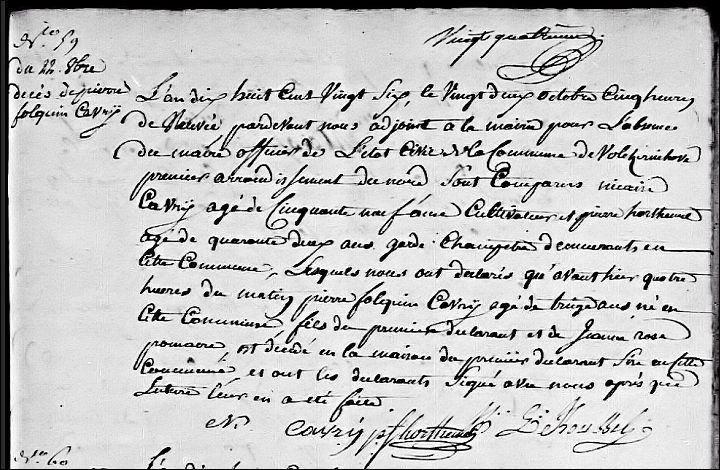 Vingt quatrieme
N.ro 59
du 22. 8bre
décès de pierre
folquin Cavrij
L'an dix huit Cent Vingt Six, le Vingt deux octobre Cinq heures
de Relevée pardevant nous adjoint a la mairie pour L'absence
du maire officier de L'etat Civil de la Commune de Volckerinckhove
premier arrondissement du nord Sont Comparus nicaise
Cavrij agé de Cinquante neuf ans Cultivateur et pierre hortheuse
agé de quarante deux ans garde Champetre demeurants en
Cette Commune, Lesquels nous ont declarés qu'avant hier quatre
heures du matin pierre folquin Cavrij agé de treize ans né en
Cette Commune, fils du premier declarant et de Jeanne rose
est decédé en la maison du premier declarant Sise en Cette
Commune et ont les declarants Signé avec nous après que
Lecture leur en a été faite
N Cavrij
N.ro 60